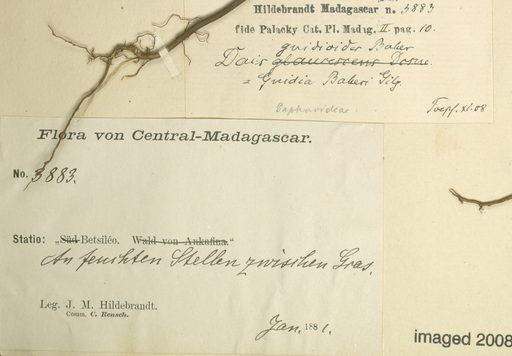 Hildebrandt Madagascar n. 3883
fide Palacky Cat. Pl. Madag. II pag. 10.
gnidioides Baker
Dais glaucescens Decne.
= Gnidia Bakeri Gilg.
Toepf. XI.08
Flora von Central-Madagascar.
No. 3883.
Statio: „Süd-Betsiléo. Wald von Ankafina."
An feuchten Stellen zwischen Gras.
Leg. J. M. Hildebrandt.
Comm. C. Rensch.
Jan. 1881.
imaged 2008